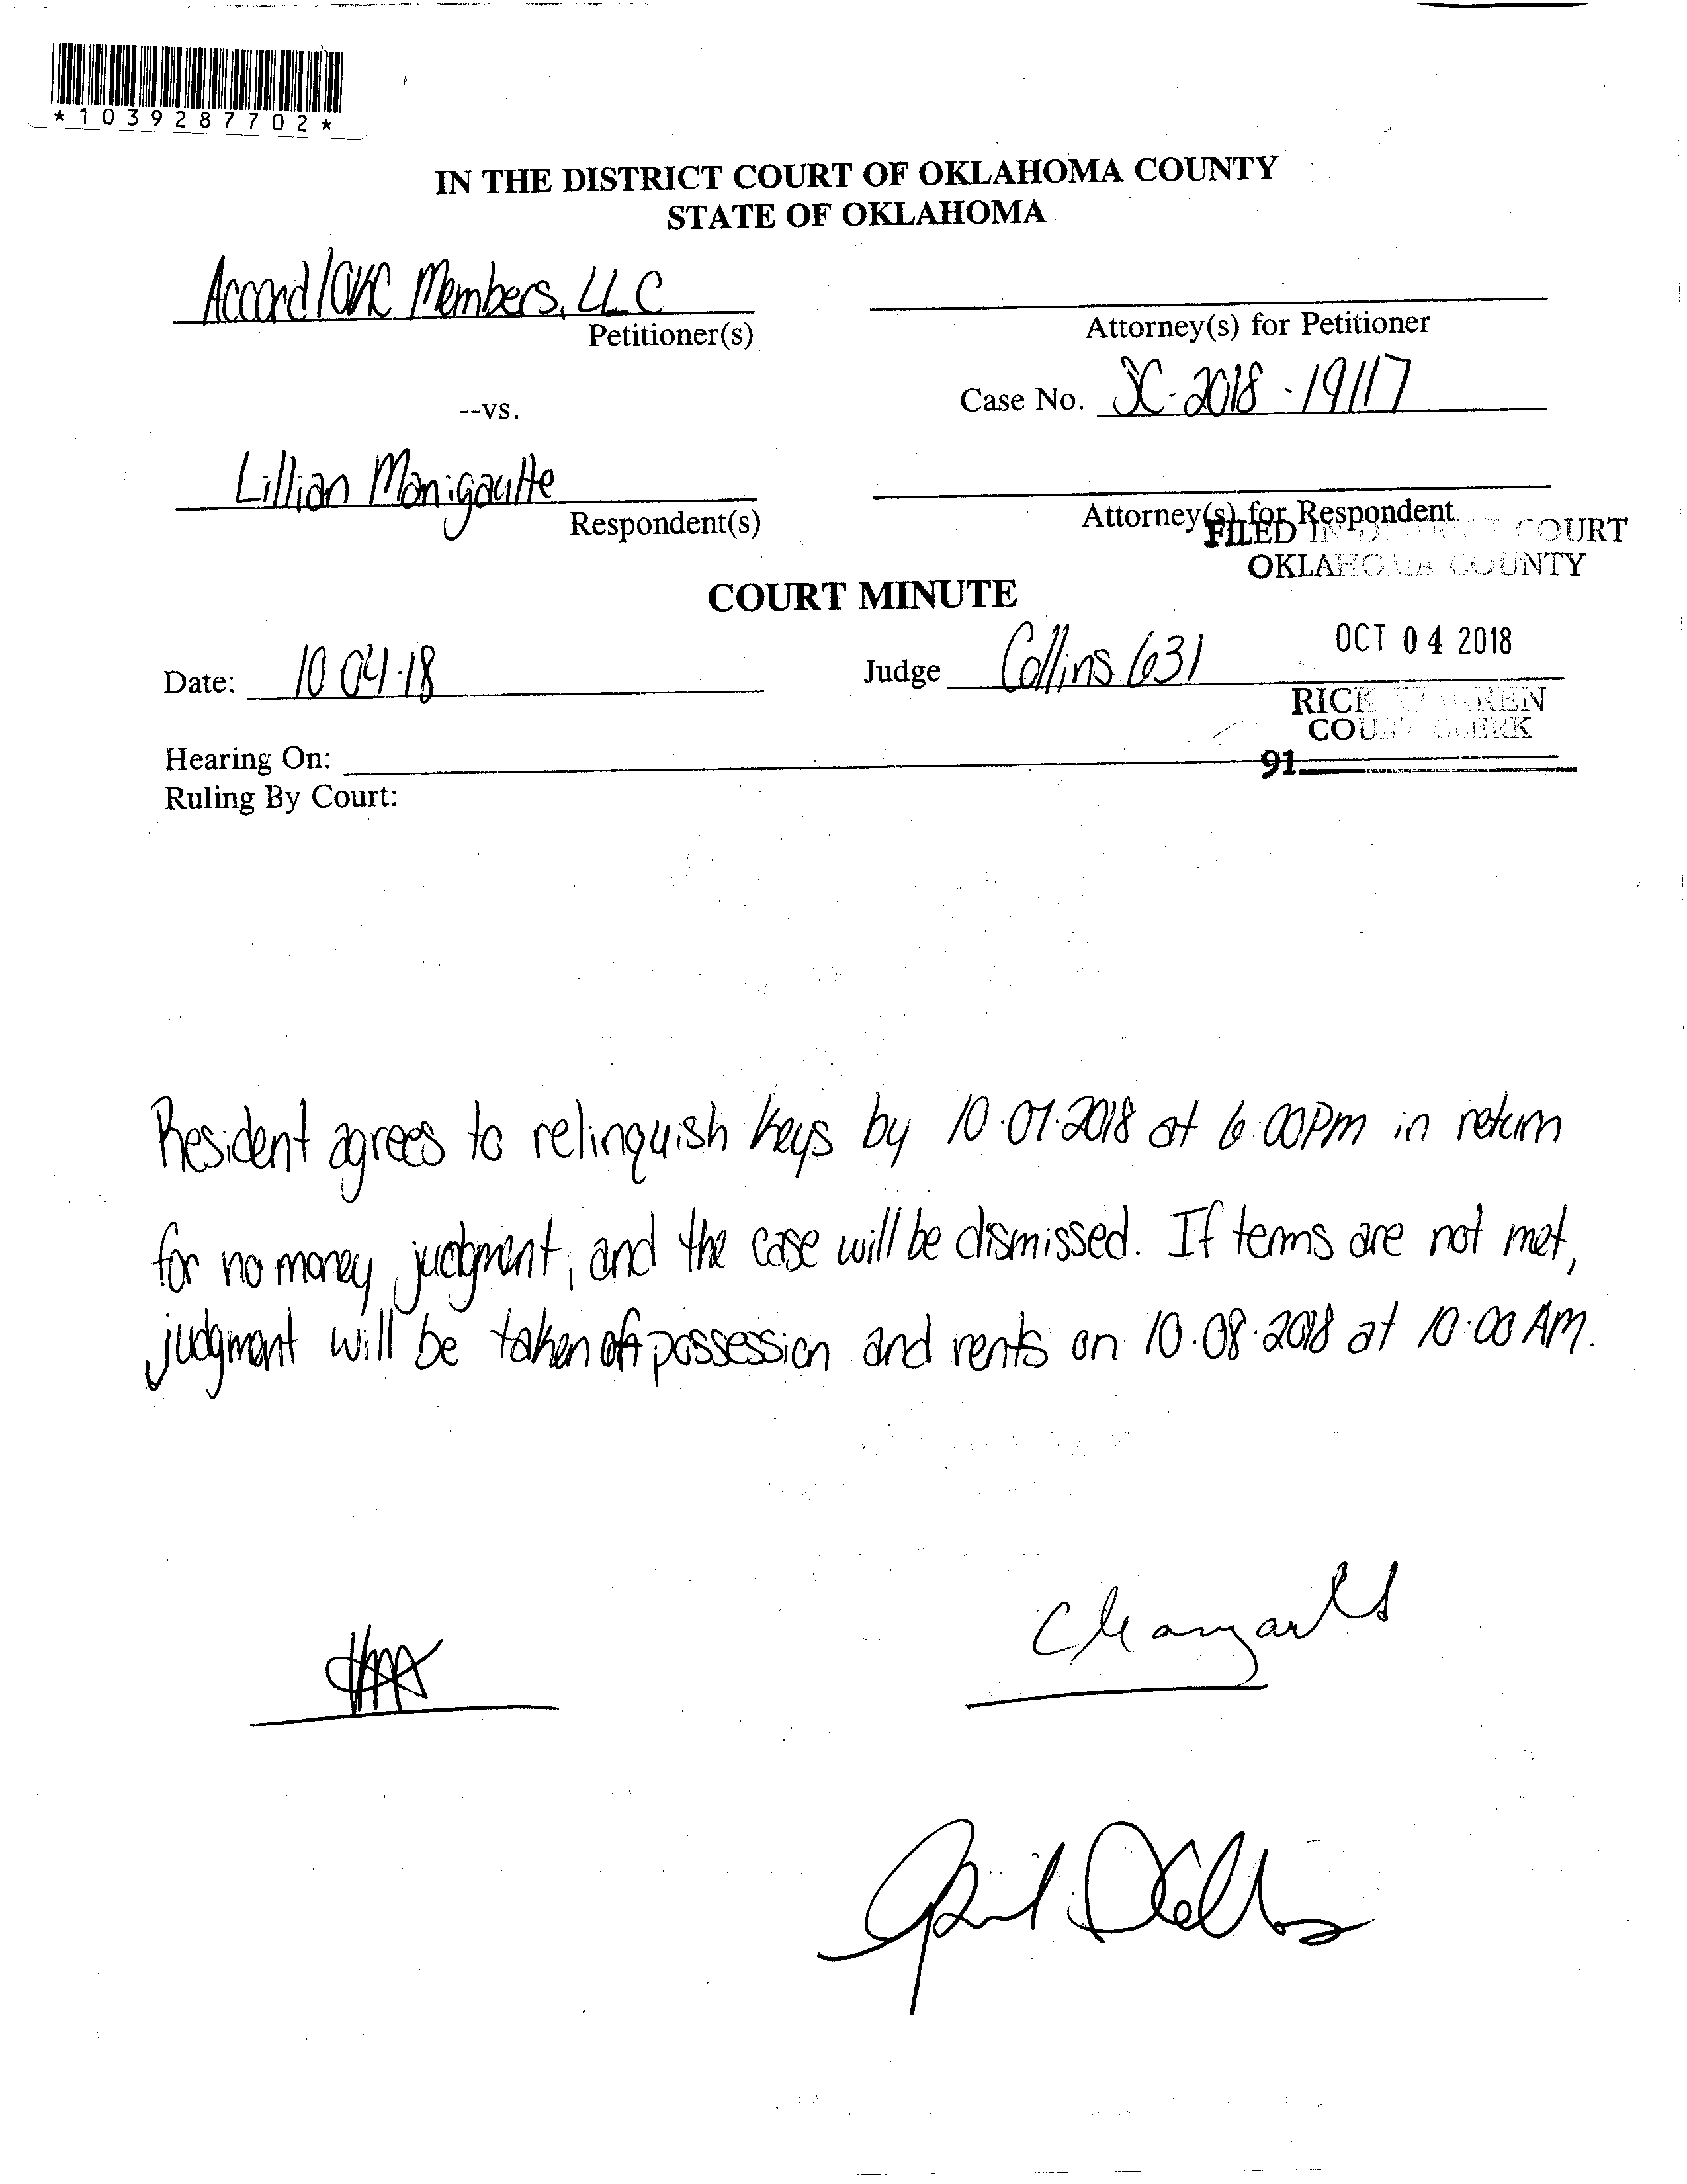 *1039287702*
IN THE DISTRICT COURT OF OKLAHOMA COUNTY
STATE OF OKLAHOMA
Accord/OKC Members, LLC
Petitioner(s)
Attorney(s) for Petitioner
Case No. SC-2018-19117
--vs.
Lillian Manigaulte
Respondent(s)
Attorney(s) for Respondent
FILED IN DISTRICT COURT
OKLAHOMA COUNTY
COURT MINUTE
OCT 04 2018
Date: 10.04.18
Judge Collins 631
RICK WARREN
COURT CLERK
Hearing On:
91
Ruling By Court:
Resident agrees to relinquish keys by 10.07.2018 at 6:00PM in return
for no money judgment, and the case will be dismissed. If terms are not met,
judgment will be taken of possession and rents on 10.08.2018 at 10:00 AM.